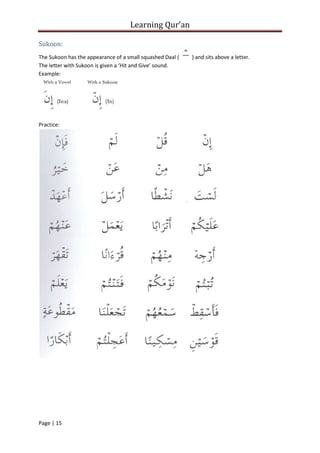 Learning Qur'an
Sukoon:
The Sukoon has the appearance of a small squashed Daal ( ـْ ) and sits above a letter.
The letter with Sukoon is given a 'Hit and Give' sound.
Example:
With a Vowel With a Sukoon
إِنَ (Ina) إِنْ (In)
Practice:
إِنْ قُلْ لَمْ فَإِنْ
هَلْ مِنْ عَنْ خَيْرُ
لَسْتَ نَشْطًا أَرْسَلَ أَعْهَدْ
عَلَيْكُمْ أَتْرَابًا يَعْمَلْ عَنْهُمْ
أَرْجِهْ مِنْهُمْ قُرْءَانًا تَقْهَرْ
تُبْتُمْ نَوْمَكُمْ فَتَنْتُمْ يَعْلَمْ
فَأَسْقِطْ سَمْعُهُمْ تَجْعَلْنَا مَقْطُوعَةٍ
قَوْسَيْنِ مِسْكِينًا أَعَجِلْتُمْ أَبْكَارًا
Page | 15